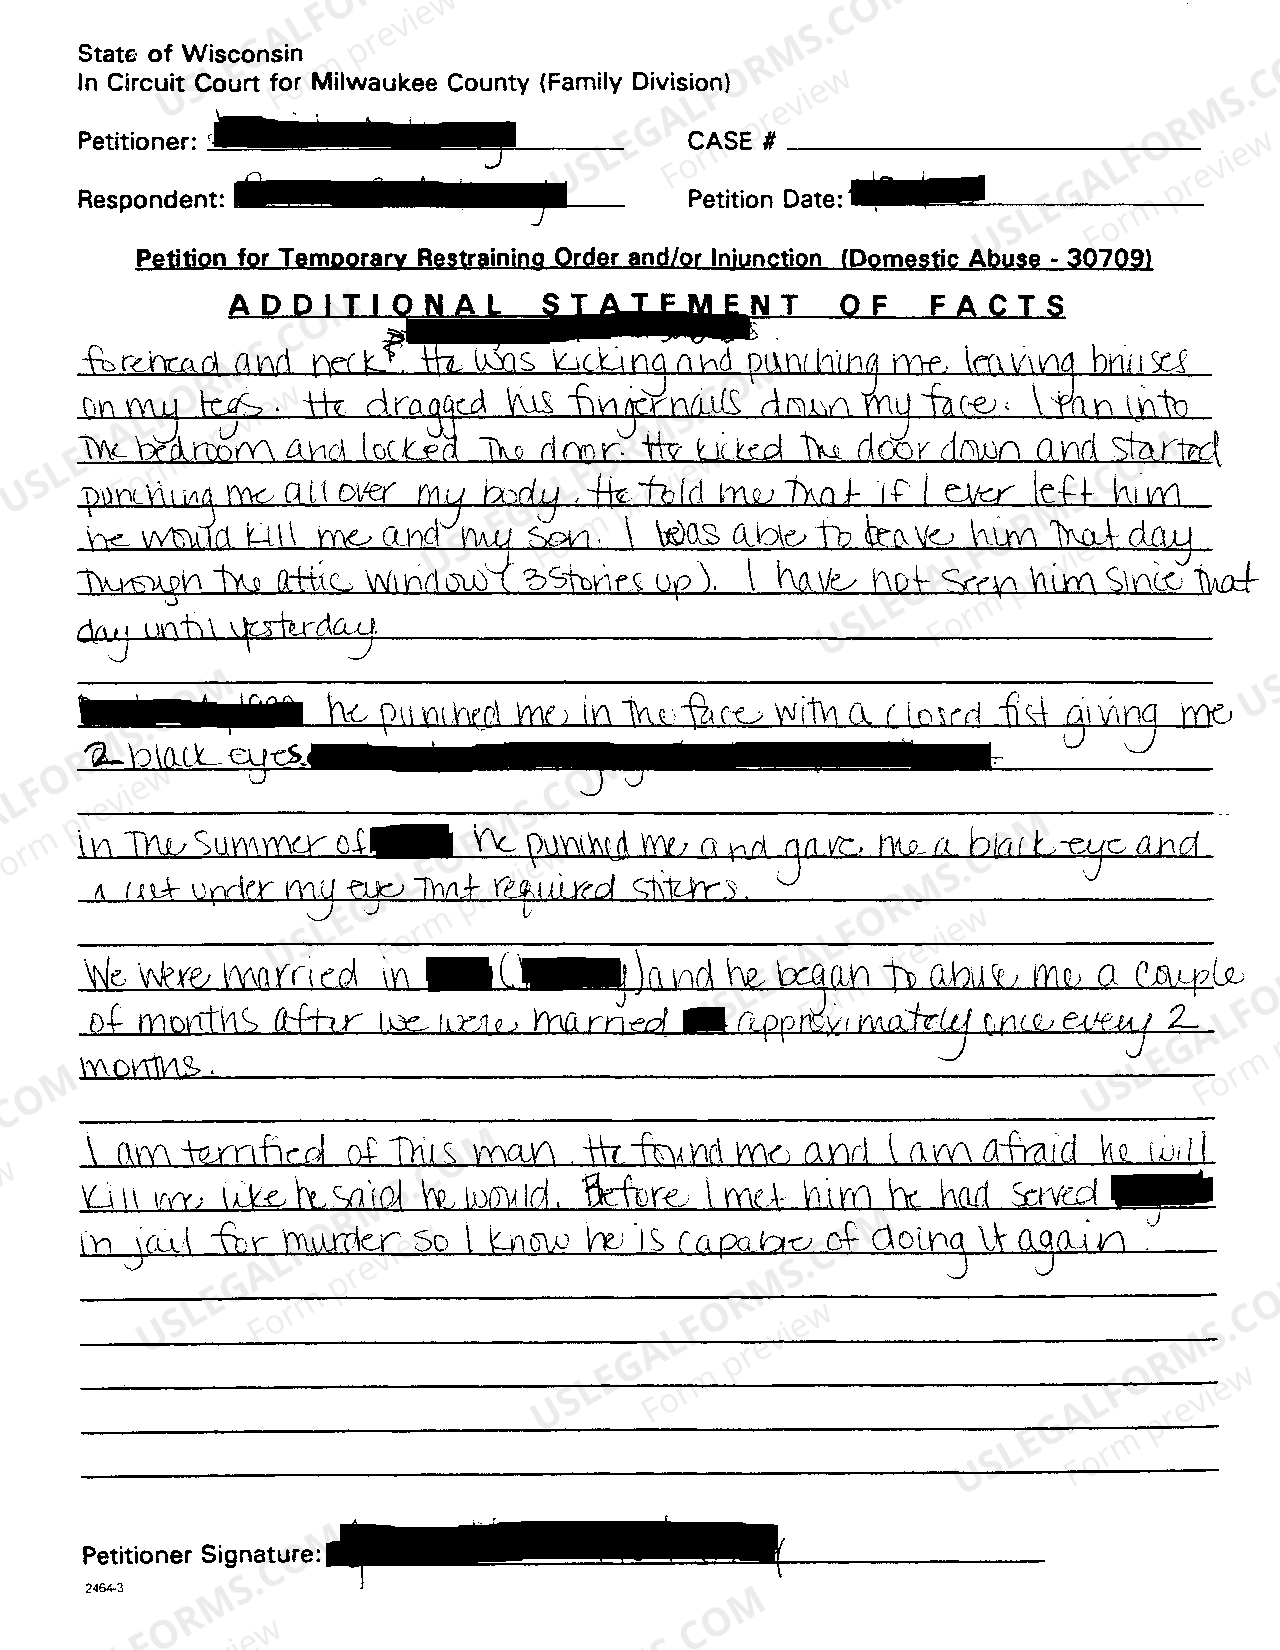 State of Wisconsin
In Circuit Court for Milwaukee County (Family Division)
Petitioner: CASE #
Respondent: Petition Date:
Petition for Temporary Restraining Order and/or Injunction (Domestic Abuse - 30709)
ADDITIONAL STATEMENT OF FACTS
forehead and neck. He was kicking and punching me, leaving bruises
on my legs. He dragged his fingernails down my face. I ran into
the bedroom and locked the door. He kicked the door down and started
punching me all over my body. He told me that if I ever left him
he would kill me and my son. I was able to leave him that day
through the attic window (3 stories up). I have not seen him since that
day until yesterday.
he punched me in the face with a closed fist giving me
2 black eyes.
in the summer of he punched me and gave me a black eye and
a cut under my eye that required stitches.
We were married in ( ) and he began to abuse me a couple
of months after we were married approximately once every 2
months.
I am terrified of this man. He found me and I am afraid he will
kill me like he said he would. Before I met him he had served
in jail for murder so I know he is capable of doing it again.
Petitioner Signature:
2464-3
USLEGALFORMS.COM
Form preview